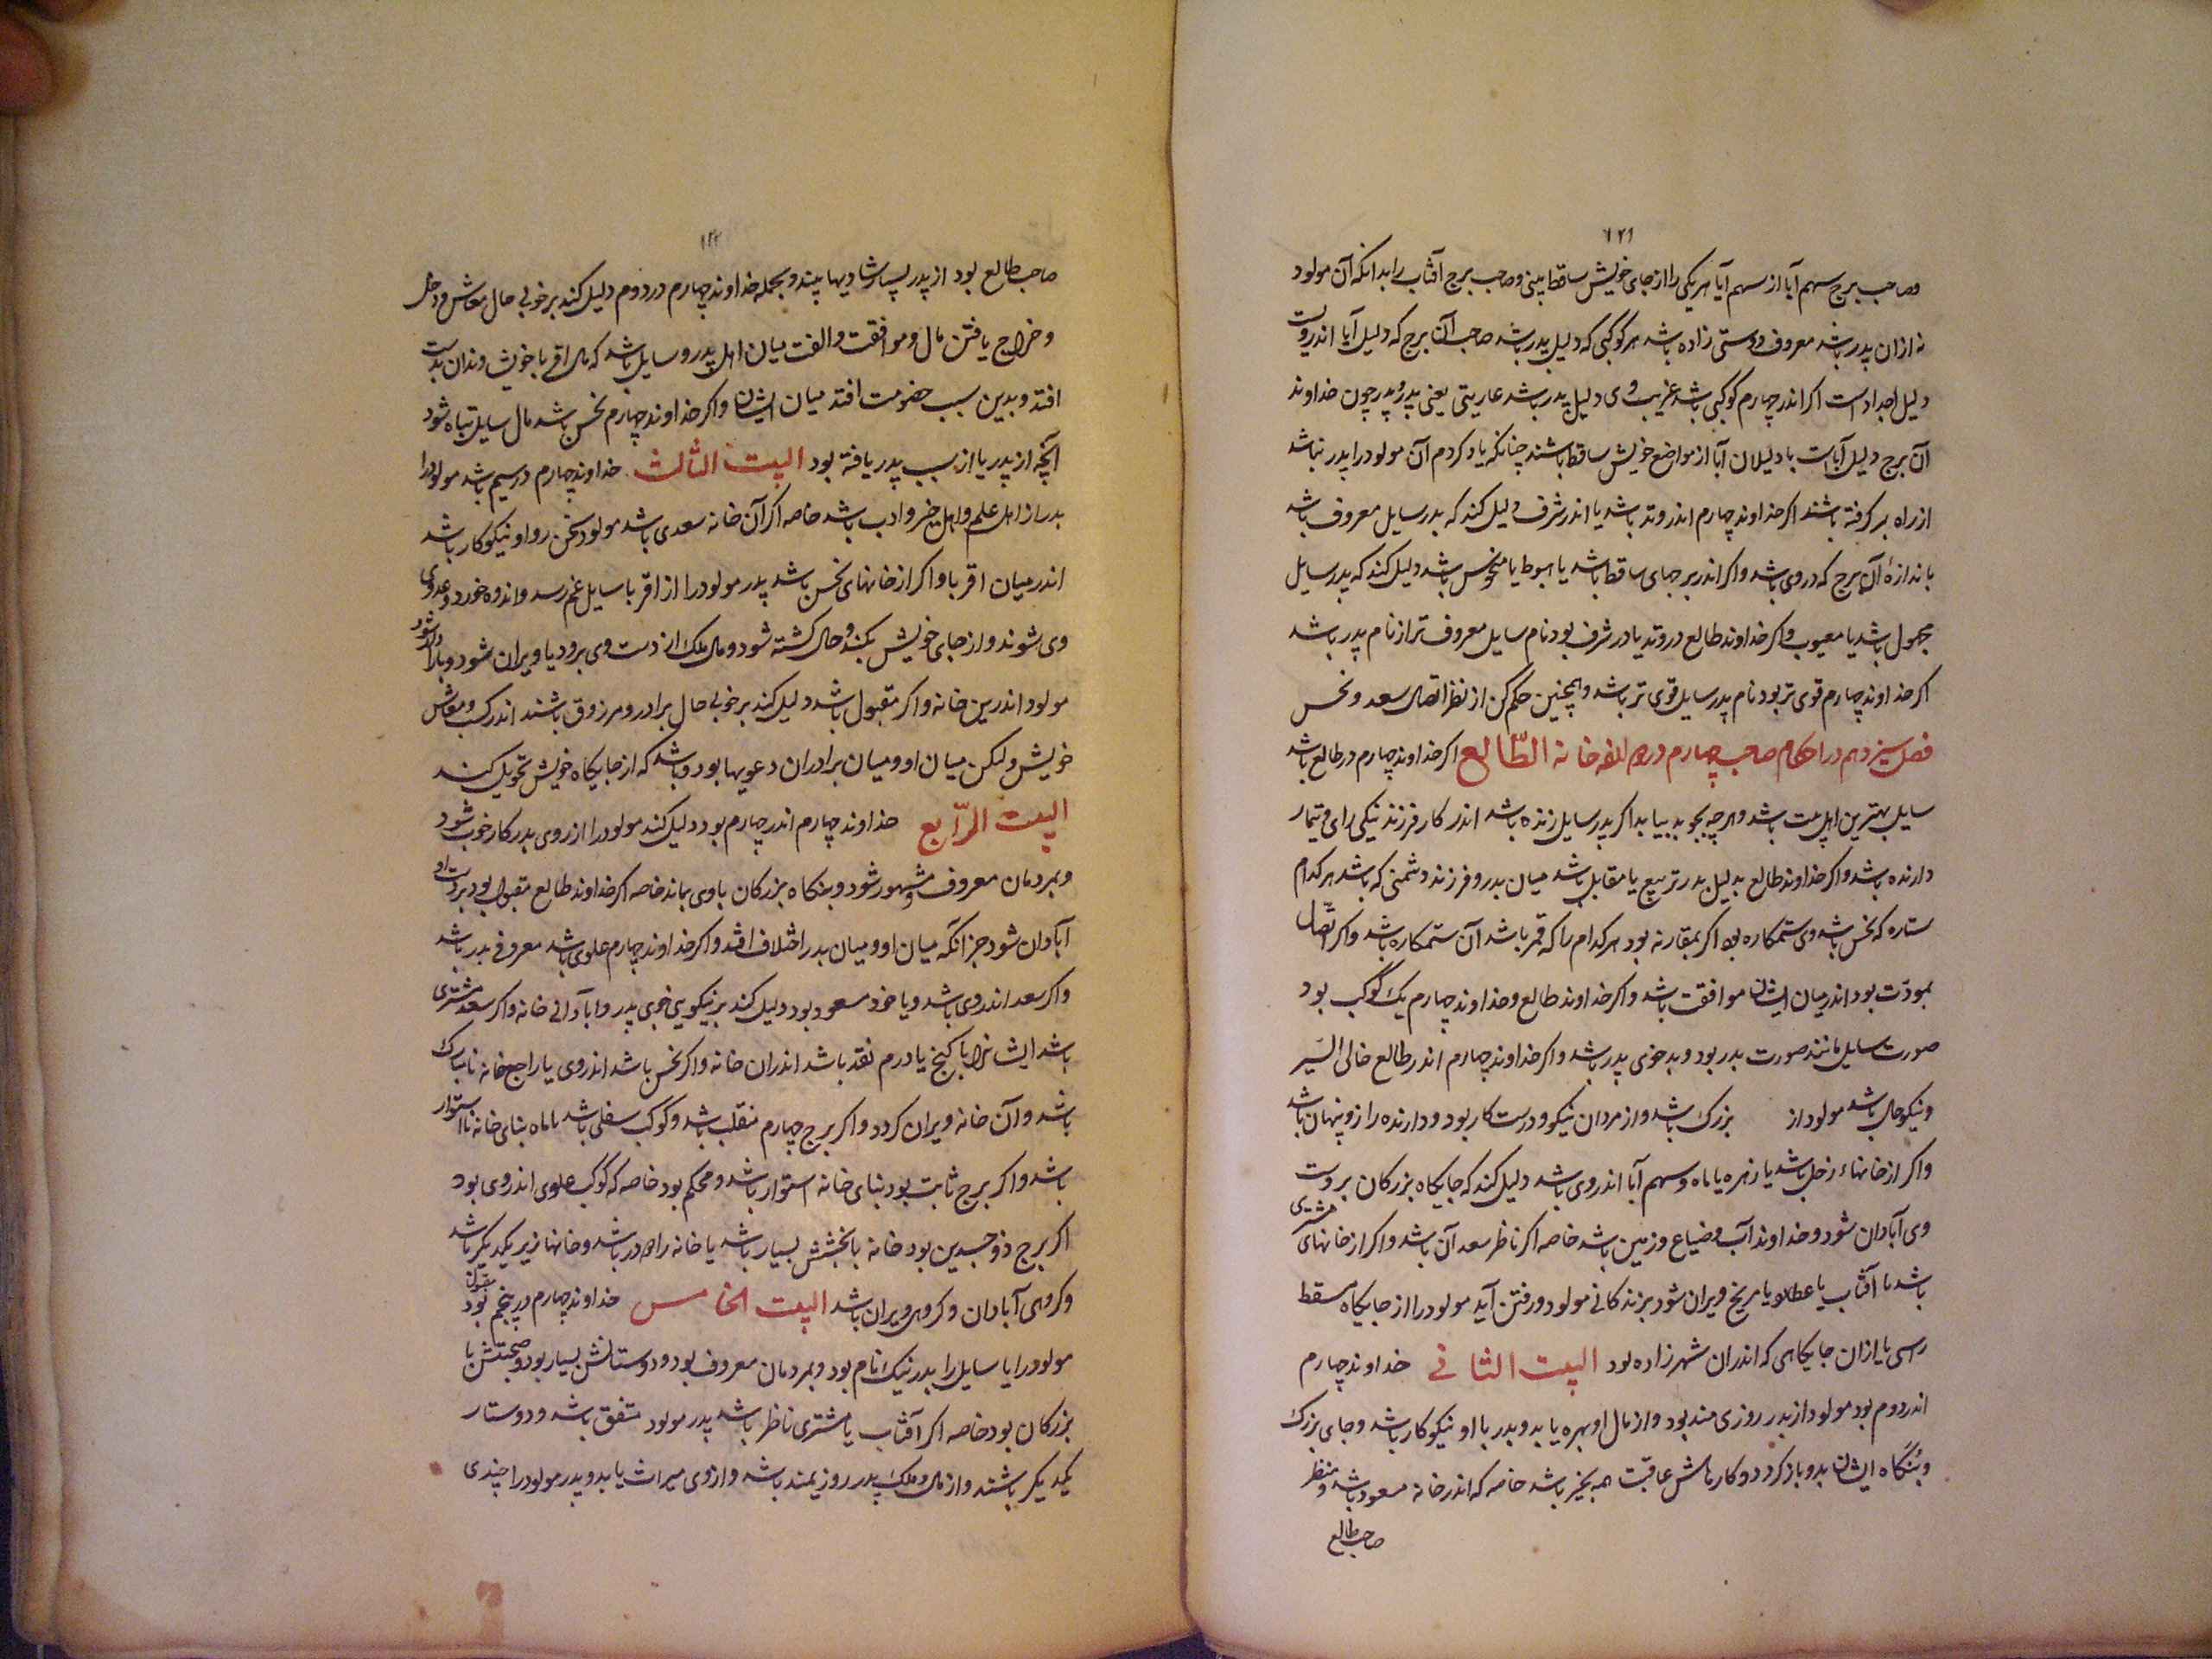 ۱۲۱
وصاحب برج سهم آبا از سهم آبا هریکی را از جای خویش ساقط بینی وصاحب برج آفتاب را بدانکه آن مولود
نه ازان پدر باشد معروف زاده باشد هر کوکبی که دلیل پدر باشد صاحب آن برج که دلیل آبا اندروست
دلیل اجداد است اکر اندر چهارم کوکبی باشد غریب وی دلیل پدر باشد عاریتی یعنی پدر چون خداوند
آن برج دلیل آباست با دلیلان آبا از مواضع خویش ساقط باشند چنانکه یاد کردم آن مولود را پدر نباشد
از راه بر کرفته باشند اکر خداوند چهارم اندر وتد باشد یا اندر شرف دلیل کند که پدر سایل معروف باشد
باندازهٔ آن برج که دروی باشد واکر اندر برجهای ساقط باشد یا هبوط یا منحوس باشد دلیل کند که پدر سایل
مجهول باشد یا معیوب واکر خداوند طالع در وتد یا در شرف بود نام سایل معروف تر از نام پدر باشد
اکر خداوند چهارم قوی تر بود نام پدر سایل قوی تر باشد وهمچنین حکم کن از نظر اتصال سعد ونحس
فصل سیزدهم در احکام صاحب چهارم در خانه الطّالع اکر خداوند چهارم در طالع باشد
سایل بهترین اهل بیت باشد وهرچه بجوید بیابد اکر پدر سایل زنده باشد اندر کار فرزند نیکی رای وتیمار
دارنده باشد واکر خداوند طالع بدلیل پدر تربیع یا مقابل باشد میان پدر وفرزند دشمنی که باشد هر کدام
ستاره که نحس باشد وی ستمکاره بود اکر بمقارنه بود هر کدام را که قمر باشد آن ستمکاره باشد واکر اتّصال
بمودّت بود اندر میان ایشان موافقت باشد واکر خداوند طالع وخداوند چهارم یک کوکب بود
صورت سایل مانند صورت پدر بود وبدخوی پدر باشد واکر خداوند چهارم اندر طالع خالی السّیر
ونیکوحال باشد مولود از بزرک باشد واز مردان نیکو ودرست کار بود ودارنده راز وپنهان باشد
واکر از خانهاء زحل باشد یا زهره یا ماه وسهم آبا اندروی باشد دلیل کند که جایکاه بزرکان بر دست
وی آبادان شود وخداوند آب وضیاع وزمین باشد خاصه اکر ناظر سعد آن باشد واکر از خانهای مشتری
باشد یا آفتاب یا عطارد یا مریخ ویران شود بزندکانی مولود ورفتن آید مولود را از جایکاه مسقط
یا ازان جایکاهی که اندران شهر زاده بود البیت الثانی خداوند چهارم
اندر دوم بود مولود از پدر روزی مند بود واز مال او بهره یابد وپدر با او نیکوکار باشد وجای بزرک
وبنگاه ایشان بدو باز کردد وکار عاقبت همه بخیر باشد خاصه که اندر خانه مسعود باشد ومنظر
صاحب طالع
۱۲۲
صاحب طالع بود از پدر بسیار شادیها بیند وبجمله خداوند چهارم در دوم دلیل کند بر خوبی حال معاش ودخل
وخراج یافتن مال وموافقت والفت میان اهل پدر وسایل باشد که باخویش وندان بدست
افتد وبدین سبب خصومت افتد میان ایشان واکر خداوند چهارم نحس باشد مال سایل تباه شود
آنچه از پدر یا از سبب پدر یافته بود البیت الثالث خداوند چهارم در سیم باشد مولود را
پدر از اهل علم واهل خیر وادب باشد خاصه اکر آن خانه سعدی باشد مولود سخن روا ونیکوکار باشد
اندر میان اقربا واکر از خانهای نحس باشد پدر مولود را از اقربا سایل غم رسد واندوه خورد وعدوی
وی شوند واز جای خویش بکند وحال کشته شود ومال وملک از دست وی برود یا ویران شود
مولود اندرین خانه واکر مقبول باشد دلیل کند بر خوبی حال برادر ومرزوق باشند اندر کسب ومعاش
خویش ولکن میان او ومیان برادران دعویها بود وباشد که از جایکاه خویش تحویل کند
البیت الرّابع خداوند چهارم اندر چهارم بود دلیل کند مولود را از روی پدر کار خوب شود
وبمردمان معروف ومشهور شود وبنکاه بزرکان باوی بماند خاصه اکر خداوند طالع مقبول بود بر دست او
آبادان شود جز آنکه میان او ومیان پدر اختلاف افتد واکر خداوند چهارم علوی باشد معروفی پدر باشد
واکر سعد اندروی باشد ویا خود مسعود بود دلیل کند بر نیکویی خوی پدر وآبادانی خانه واکر سعد مشتری
باشد ایشانرا گنج یا درم نقد باشد اندران خانه واکر نحس باشد اندروی یا راجع خانه نامبارک
باشد وآن خانه ویران کردد واکر برج چهارم منقلب باشد وکوکب سفلی باشد یا ماه بنای خانه نااستوار
باشد واکر برج ثابت بود بنای خانه استوار باشد ومحکم بود خاصه که کوکب علوی اندروی بود
اکر برج ذوجسدین بود خانه با بخشش بسیار باشد یا خانه در باشد وخانها زیر یکدیکر باشد
وکروهی آبادان وکروهی ویران باشد البیت الخامس خداوند چهارم در پنجم بود مقبول
مولود را یا سایل را پدر نیک نام بود وبمردمان معروف بود ودوستانش بسیار بود وصحبتش با
بزرکان بود خاصه اکر آفتاب یا مشتری ناظر باشد پدر مولود متفق باشد ودوستار
یکدیکر باشند واز مال وملک پدر روزیمند باشد وازوی میراث یابد وپدر مولود را چندی